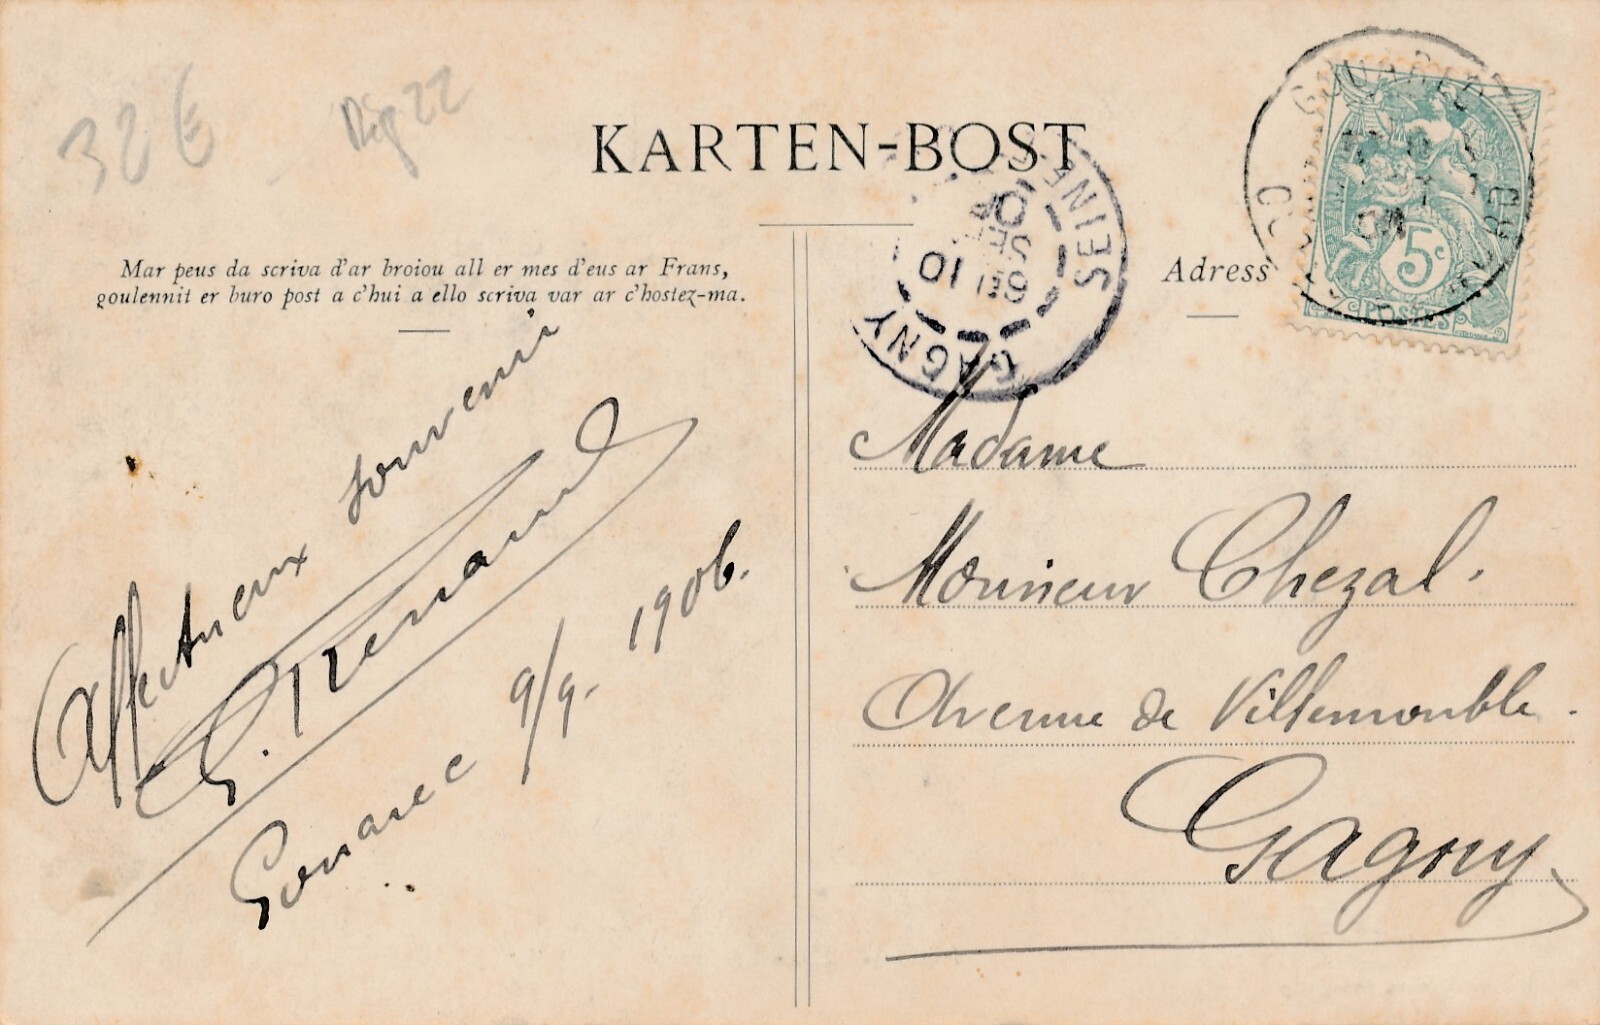 32 €
KARTEN-BOST
Mar peus da scriva d'ar broiou all er mes d'eus ar Frans,
goulennit er buro post a c'hui a ello scriva var ar c'hostez-ma.
Adress
GOUAREC
5c
POSTES
GAGNY
SEINE
6E 10
SEPT
Affectueux souvenir
Gouarec 9/9. 1906.
Madame
Monsieur Chezal.
Avenue de Villemonble.
Gagny